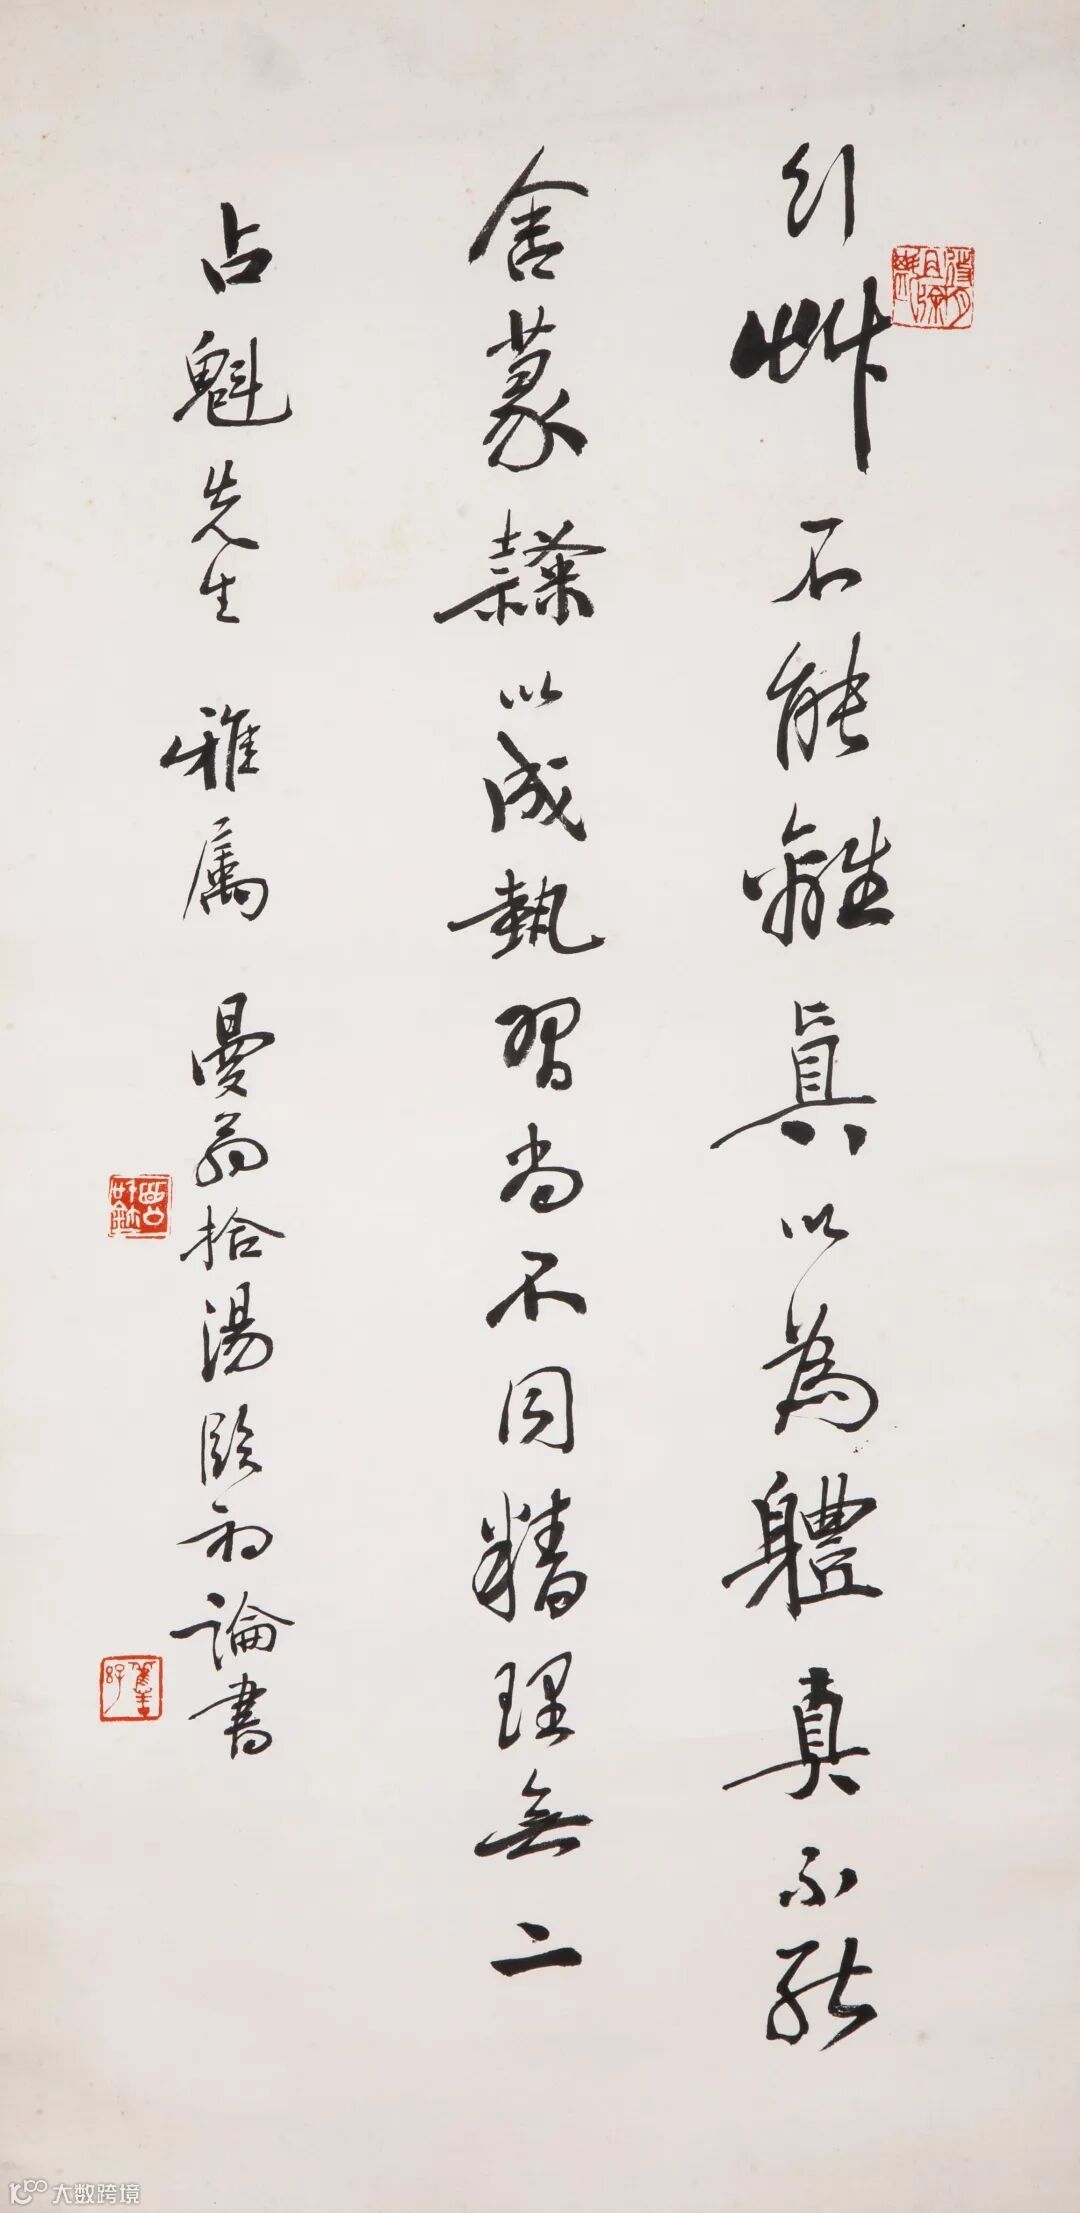 行艸不能離真以為體真不能
舍篆隸以成執習尚不同精理無二
占魁先生 雅属 曼翁拾湯臨初論書
大数跨境